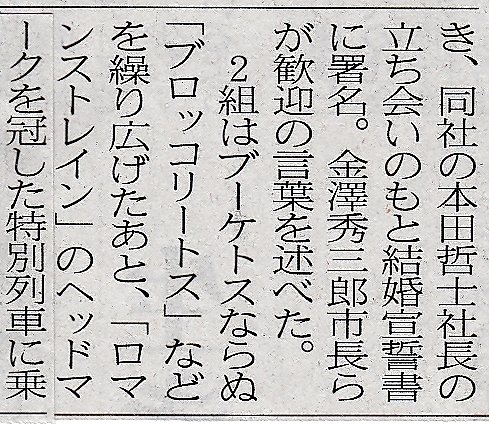 き、同社の本田哲士社長の
立ち会いのもと結婚宣誓書
に署名。金澤秀三郎市長ら
が歓迎の言葉を述べた。
2組はブーケトスならぬ
「ブロッコリートス」など
を繰り広げたあと、「ロマ
ンストレイン」のヘッドマ
ークを冠した特別列車に乗